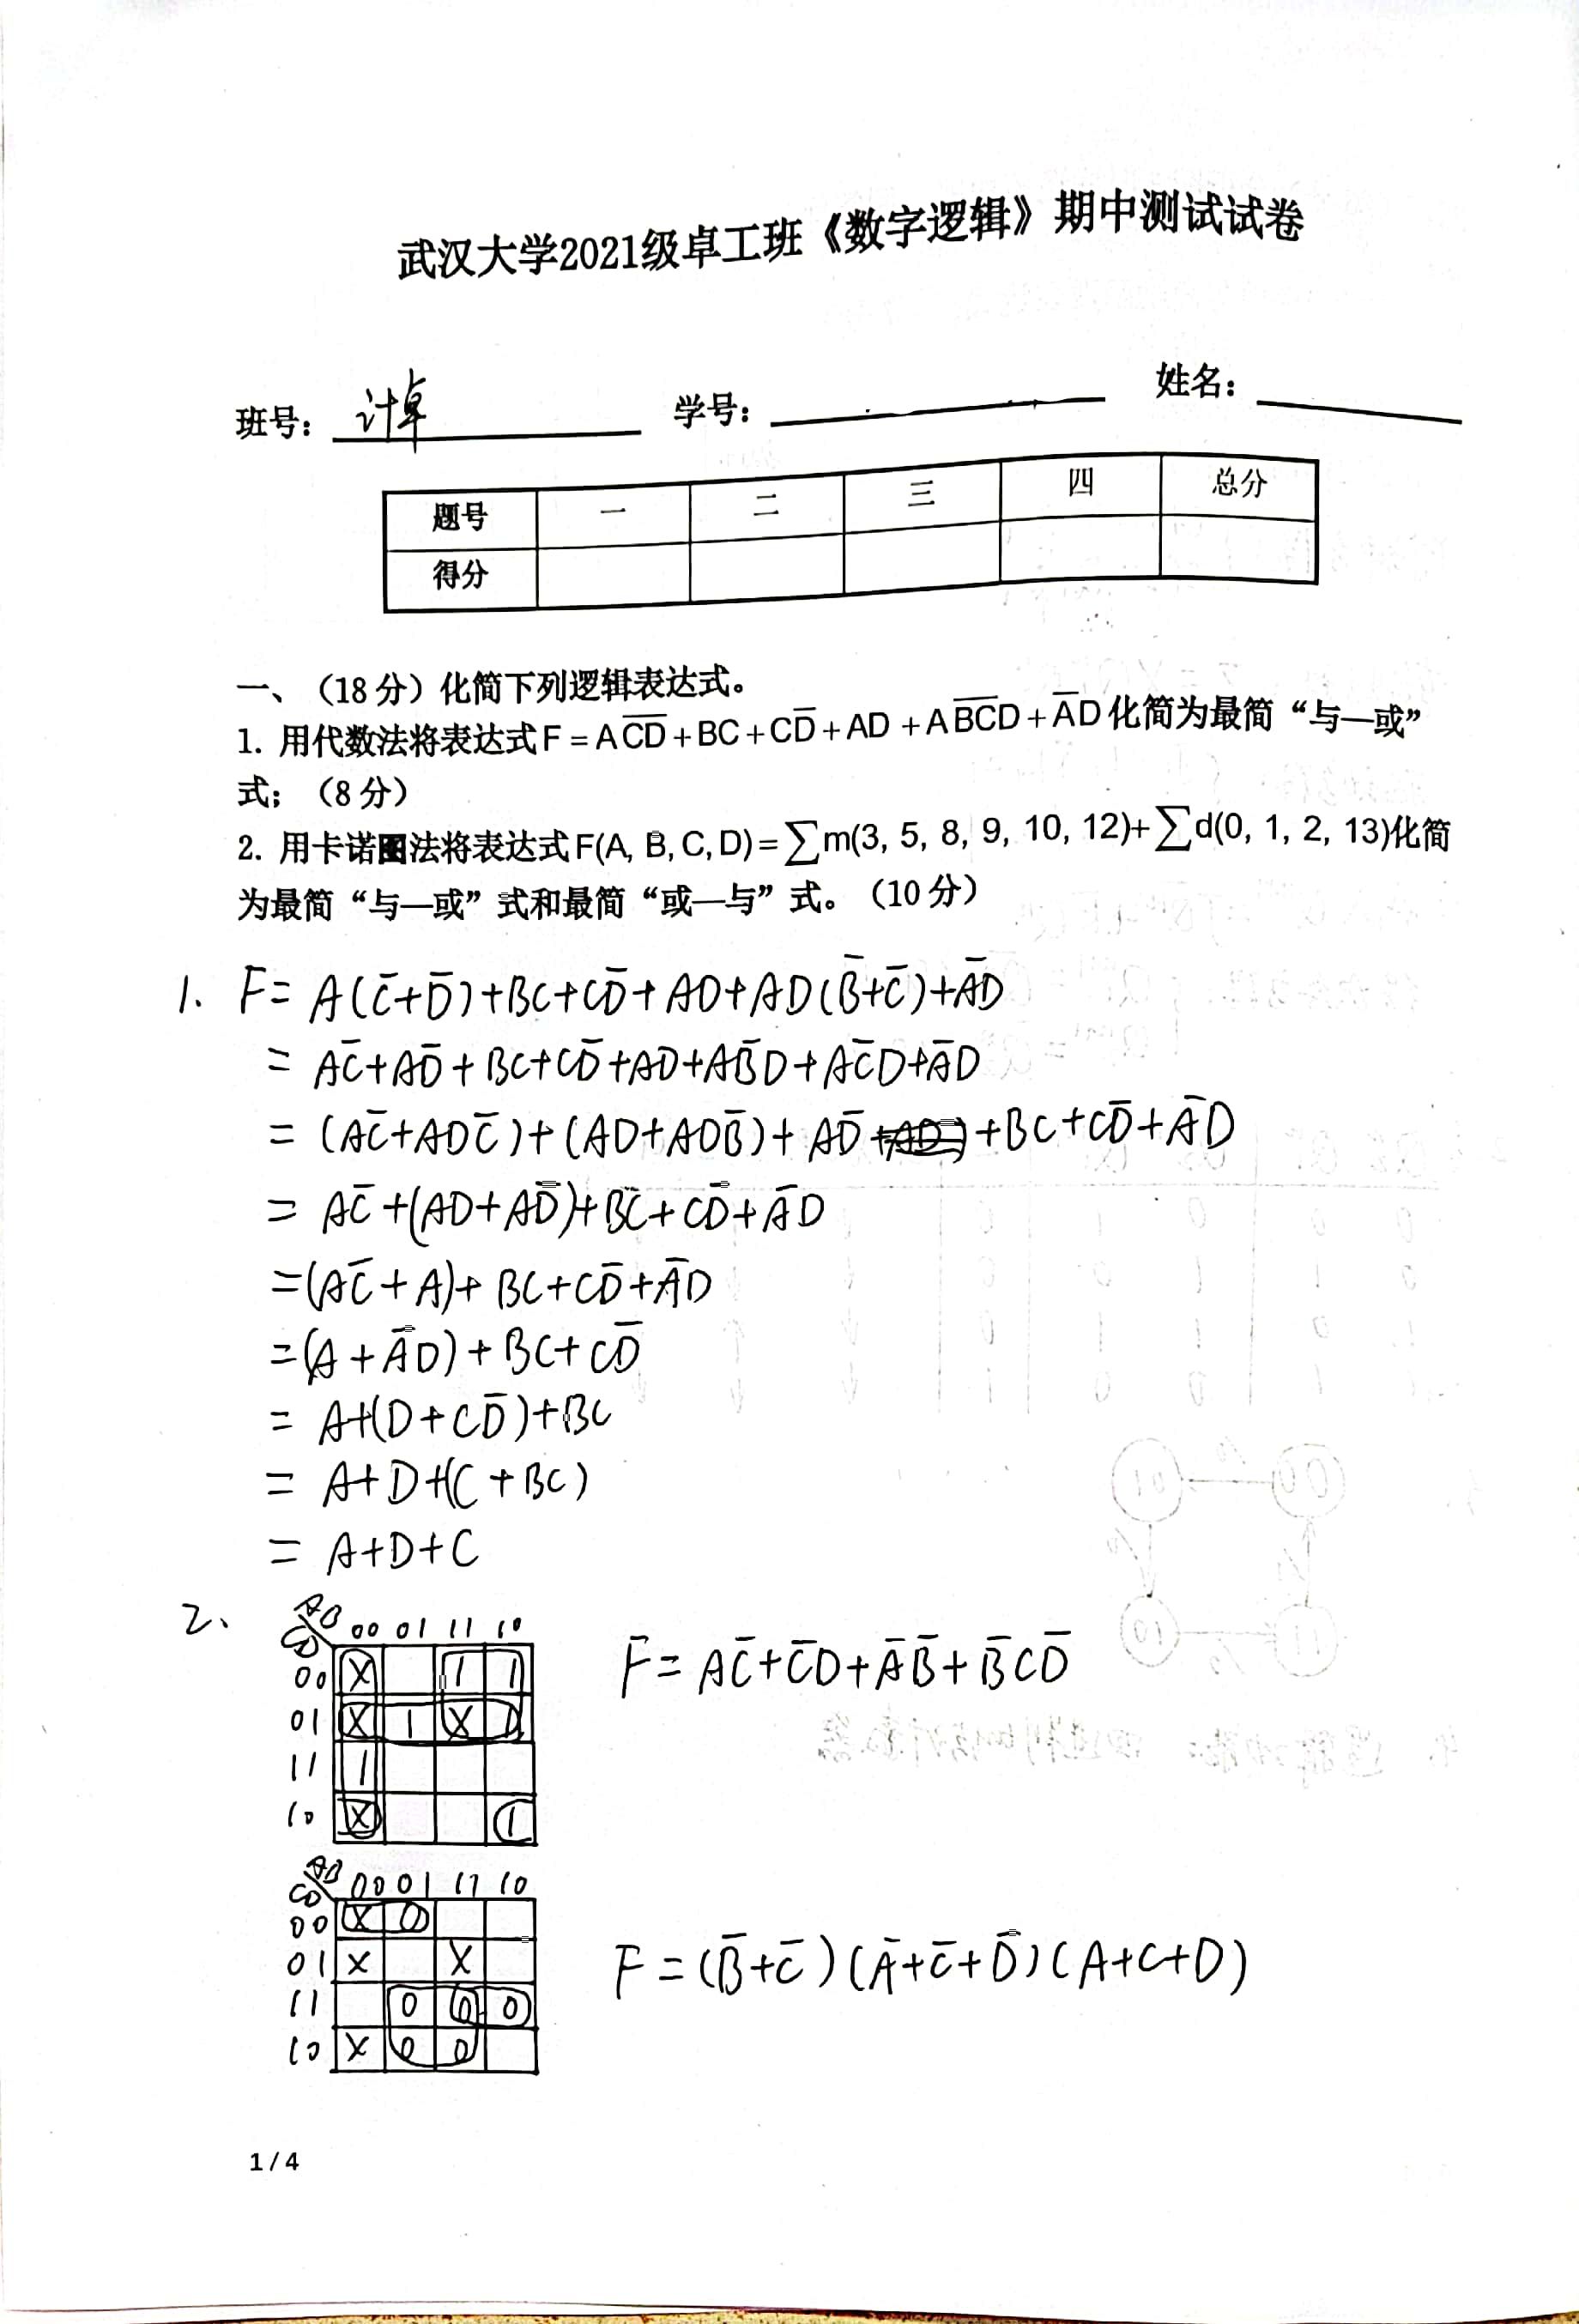 武汉大学2021级卓工班《数字逻辑》期中测试试卷
班号: 计卓 学号: 姓名:
题号 一 二 三 四 总分
得分
一、（18 分）化简下列逻辑表达式。
1. 用代数法将表达式 F = A C̅D̅ + BC + CD̅ + AD + A B̅C̅D + A̅D 化简为最简“与—或”
式；（8 分）
2. 用卡诺图法将表达式 F(A, B, C, D) = ∑m(3, 5, 8, 9, 10, 12)+ ∑d(0, 1, 2, 13)化简
为最简“与—或”式和最简“或—与”式。（10 分）
1. F = A(C̅+D̅)+BC+CD̅+AD+AD(B̅+C̅)+A̅D
= AC̅+AD̅+BC+CD̅+AD+AB̅D+AC̅D+A̅D
= (AC̅+ADC̅)+(AD+ADB̅)+AD̅+BC+CD̅+A̅D
= AC̅+(AD+AD̅)+BC+CD̅+A̅D
=(AC̅+A)+BC+CD̅+A̅D
=(A+A̅D)+BC+CD̅
= A+(D+CD̅)+BC
= A+D+(C+BC)
= A+D+C
2、 AB 00 01 11 10
CD
00 X 1 1
F = AC̅+C̅D+A̅B̅+B̅CD̅
01 X 1 X 1
11 1
10 X 1
AB 00 01 11 10
CD
00 X 0
01 X X
F = (B̅+C̅)(A̅+C̅+D̅)(A+C+D)
11 0 0 0
10 X 0 0
1 / 4